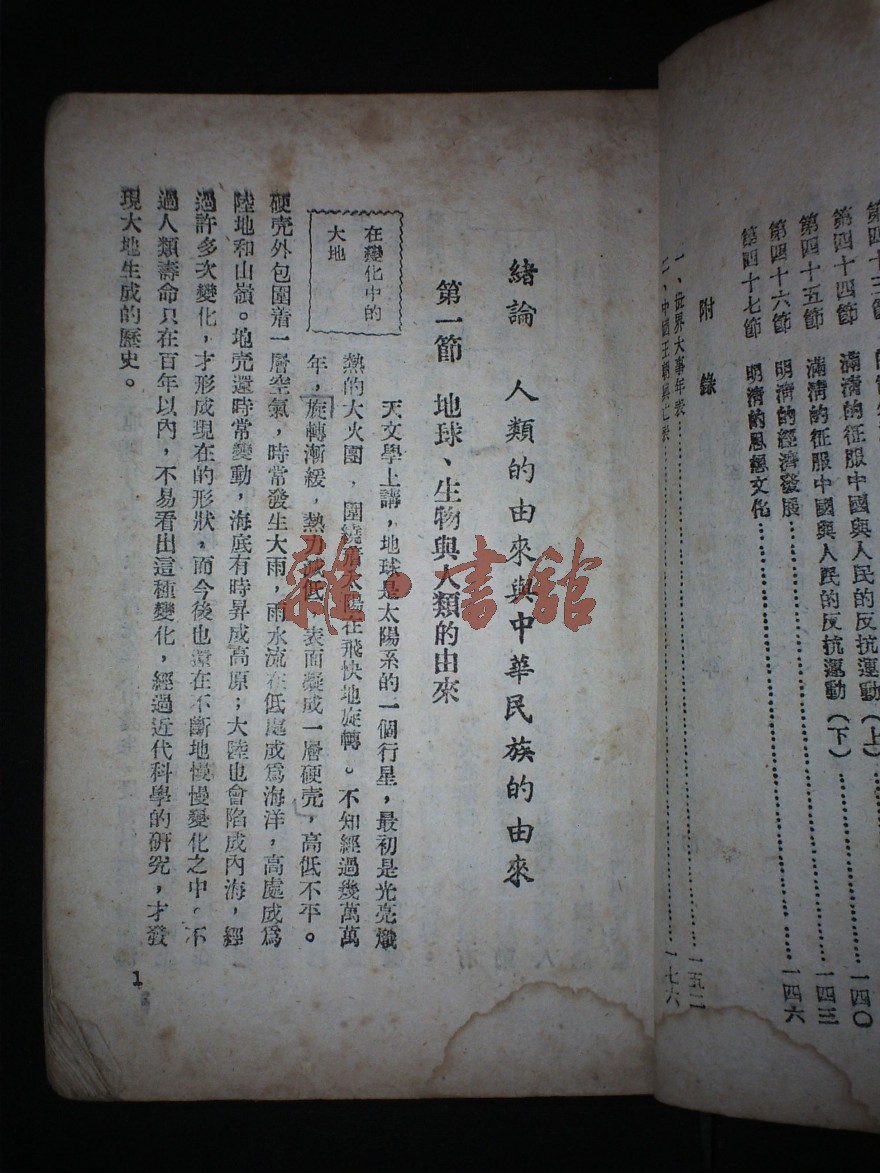 第四十四節 滿清的征服中國與人民的反抗運動(上)……一四〇
第四十五節 滿清的征服中國與人民的反抗運動(下)……一四三
第四十六節 明清的經濟發展……一四六
第四十七節 明清的思想文化……
附錄
一、世界大事年表……一五二
二、中國王朝興亡表……一七六
緒論 人類的由來與中華民族的由來
第一節 地球、生物與人類的由來
在變化中的
大地
天文學上講,地球是太陽系的一個行星,最初是光亮熾
熱的大火團,圍繞着太陽在飛快地旋轉。不知經過幾萬萬
年,旋轉漸緩,熱力減低,表面凝成一層硬壳,高低不平。
硬壳外包圍着一層空氣,時常發生大雨,雨水流在低處成爲海洋,高處成爲
陸地和山嶺。地壳還時常變動,海底有時昇成高原;大陸也會陷成內海,經
過許多次變化,才形成現在的形狀,而今後也還在不斷地慢慢變化之中。不
過人類壽命只在百年以內,不易看出這種變化,經過近代科學的研究,才發
現大地生成的歷史。
1
雜·書館